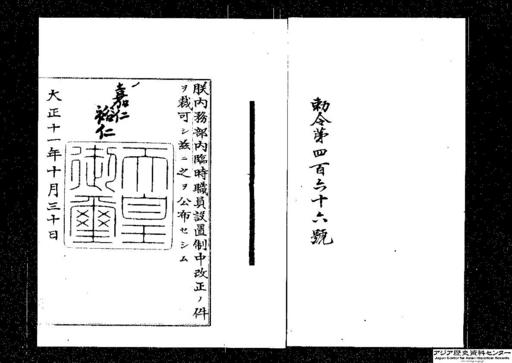 勅令第四百六十六號
朕内務部内臨時職員設置制中改正ノ件
ヲ裁可シ茲ニ之ヲ公布セシム
嘉仁
裕仁
天皇
御璽
大正十一年十月三十日
アジア歴史資料センター
Japan Center for Asian Historical Records